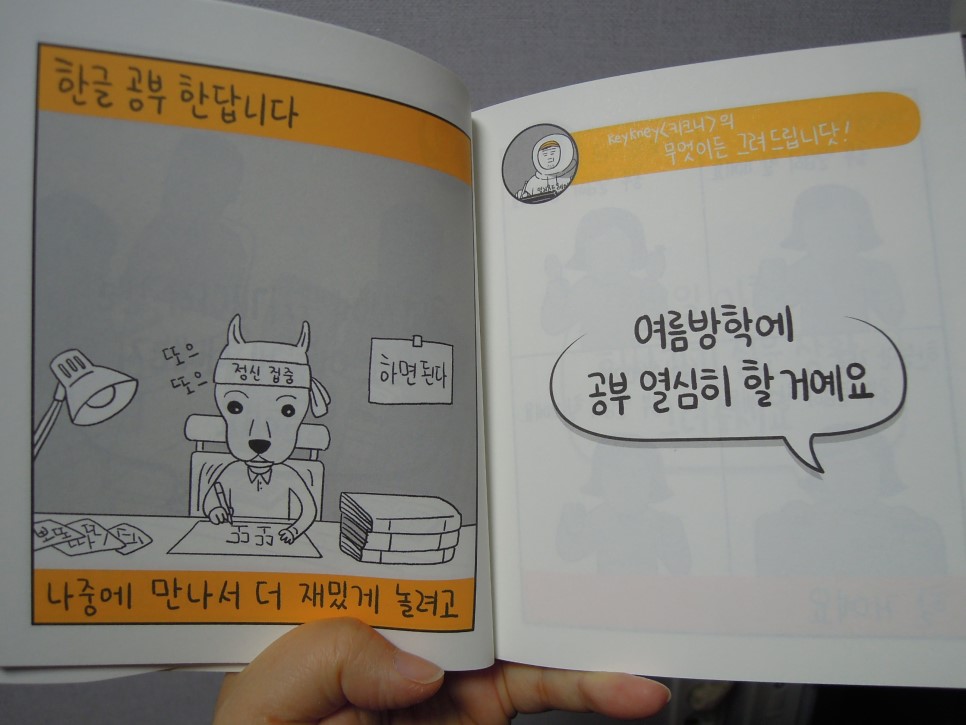 한글 공부 한답니다
또으
또으
정신 집중
하면 된다
나중에 만나서 더 재밌게 놀려고
keykney<키크니>의
무엇이든 그려드립니닷!
여름방학에
공부 열심히 할 거예요